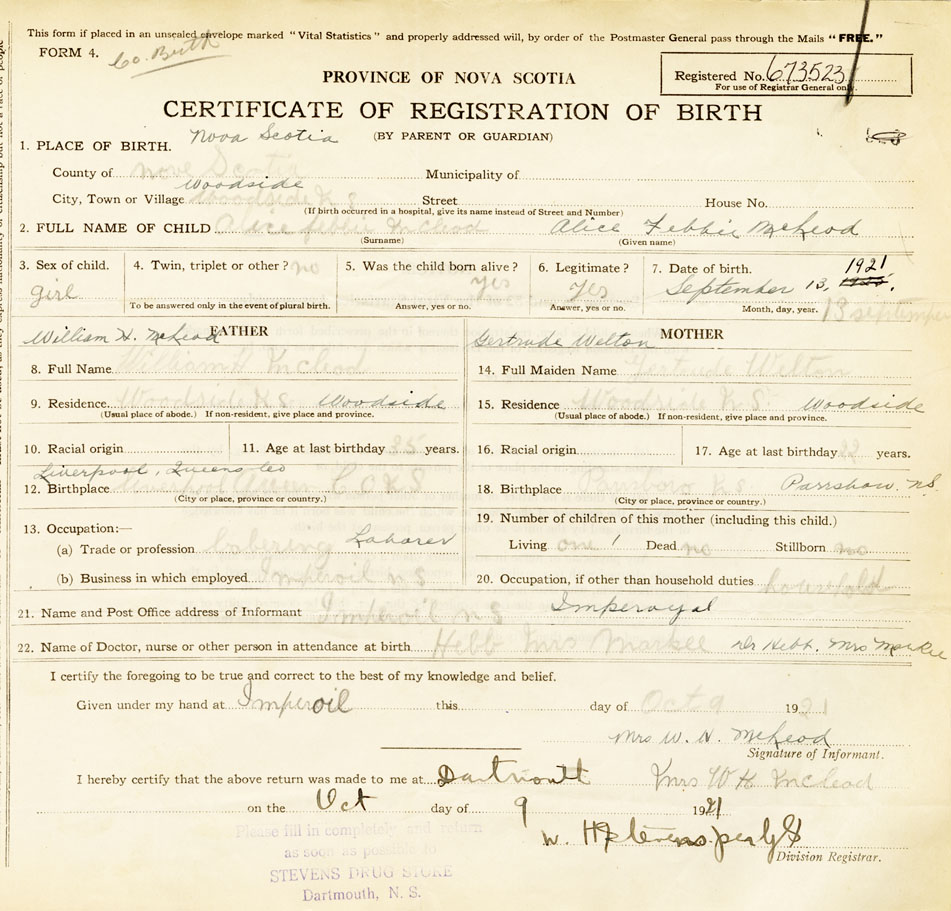 This form if placed in an unsealed envelope marked "Vital Statistics" and properly addressed will, by order of the Postmaster General pass through the Mails "FREE."
FORM 4.
Co. Birth
PROVINCE OF NOVA SCOTIA
Registered No. 673523
For use of Registrar General only.
CERTIFICATE OF REGISTRATION OF BIRTH
(BY PARENT OR GUARDIAN)
Nova Scotia
1. PLACE OF BIRTH.
County of nove Scotia Municipality of
Woodside
City, Town or Village Woodside N S Street House No.
(If birth occurred in a hospital, give its name instead of Street and Number)
2. FULL NAME OF CHILD Alice febbie Mcleod Alice Febbie McLeod
(Surname) (Given name)
3. Sex of child. girl
4. Twin, triplet or other? no
To be answered only in the event of plural birth.
5. Was the child born alive? yes
Answer, yes or no.
6. Legitimate? Yes
Answer, yes or no.
7. Date of birth. 1921
September 13,
Month, day, year. 13 september
William H. McLeod FATHER
8. Full Name William H Mcleod
9. Residence. Woodside N S Woodside
(Usual place of abode.) If non-resident, give place and province.
10. Racial origin 11. Age at last birthday 25 years.
Liverpool, Queens Co
12. Birthplace Liverpool Queen C O N S
(City or place, province or country.)
13. Occupation:—
(a) Trade or profession labering Laborer
(b) Business in which employed Imperoil n S
Gertrude Welton MOTHER
14. Full Maiden Name Gertrude Welton
15. Residence Woodside N S Woodside
(Usual place of abode.) If non-resident, give place and province.
16. Racial origin 17. Age at last birthday 22 years.
18. Birthplace Parrsboro N S
(City or place, province or country.)
19. Number of children of this mother (including this child.)
Living one 1 Dead no Stillborn no
20. Occupation, if other than household duties household
21. Name and Post Office address of Informant Imperoil n S Imperoyal
22. Name of Doctor, nurse or other person in attendance at birth Hebb Mrs Markee Dr Hebb, Mrs Markee
I certify the foregoing to be true and correct to the best of my knowledge and belief.
Given under my hand at Imperoil this day of Oct 9 1921
Mrs W. H. McLeod
Signature of Informant.
I hereby certify that the above return was made to me at Dartmouth Mrs W H Mcleod
on the Oct day of 9 1921
W. H Stevens per
Division Registrar.
Please fill in completely and return
as soon as possible to
STEVENS DRUG STORE
Dartmouth, N. S.